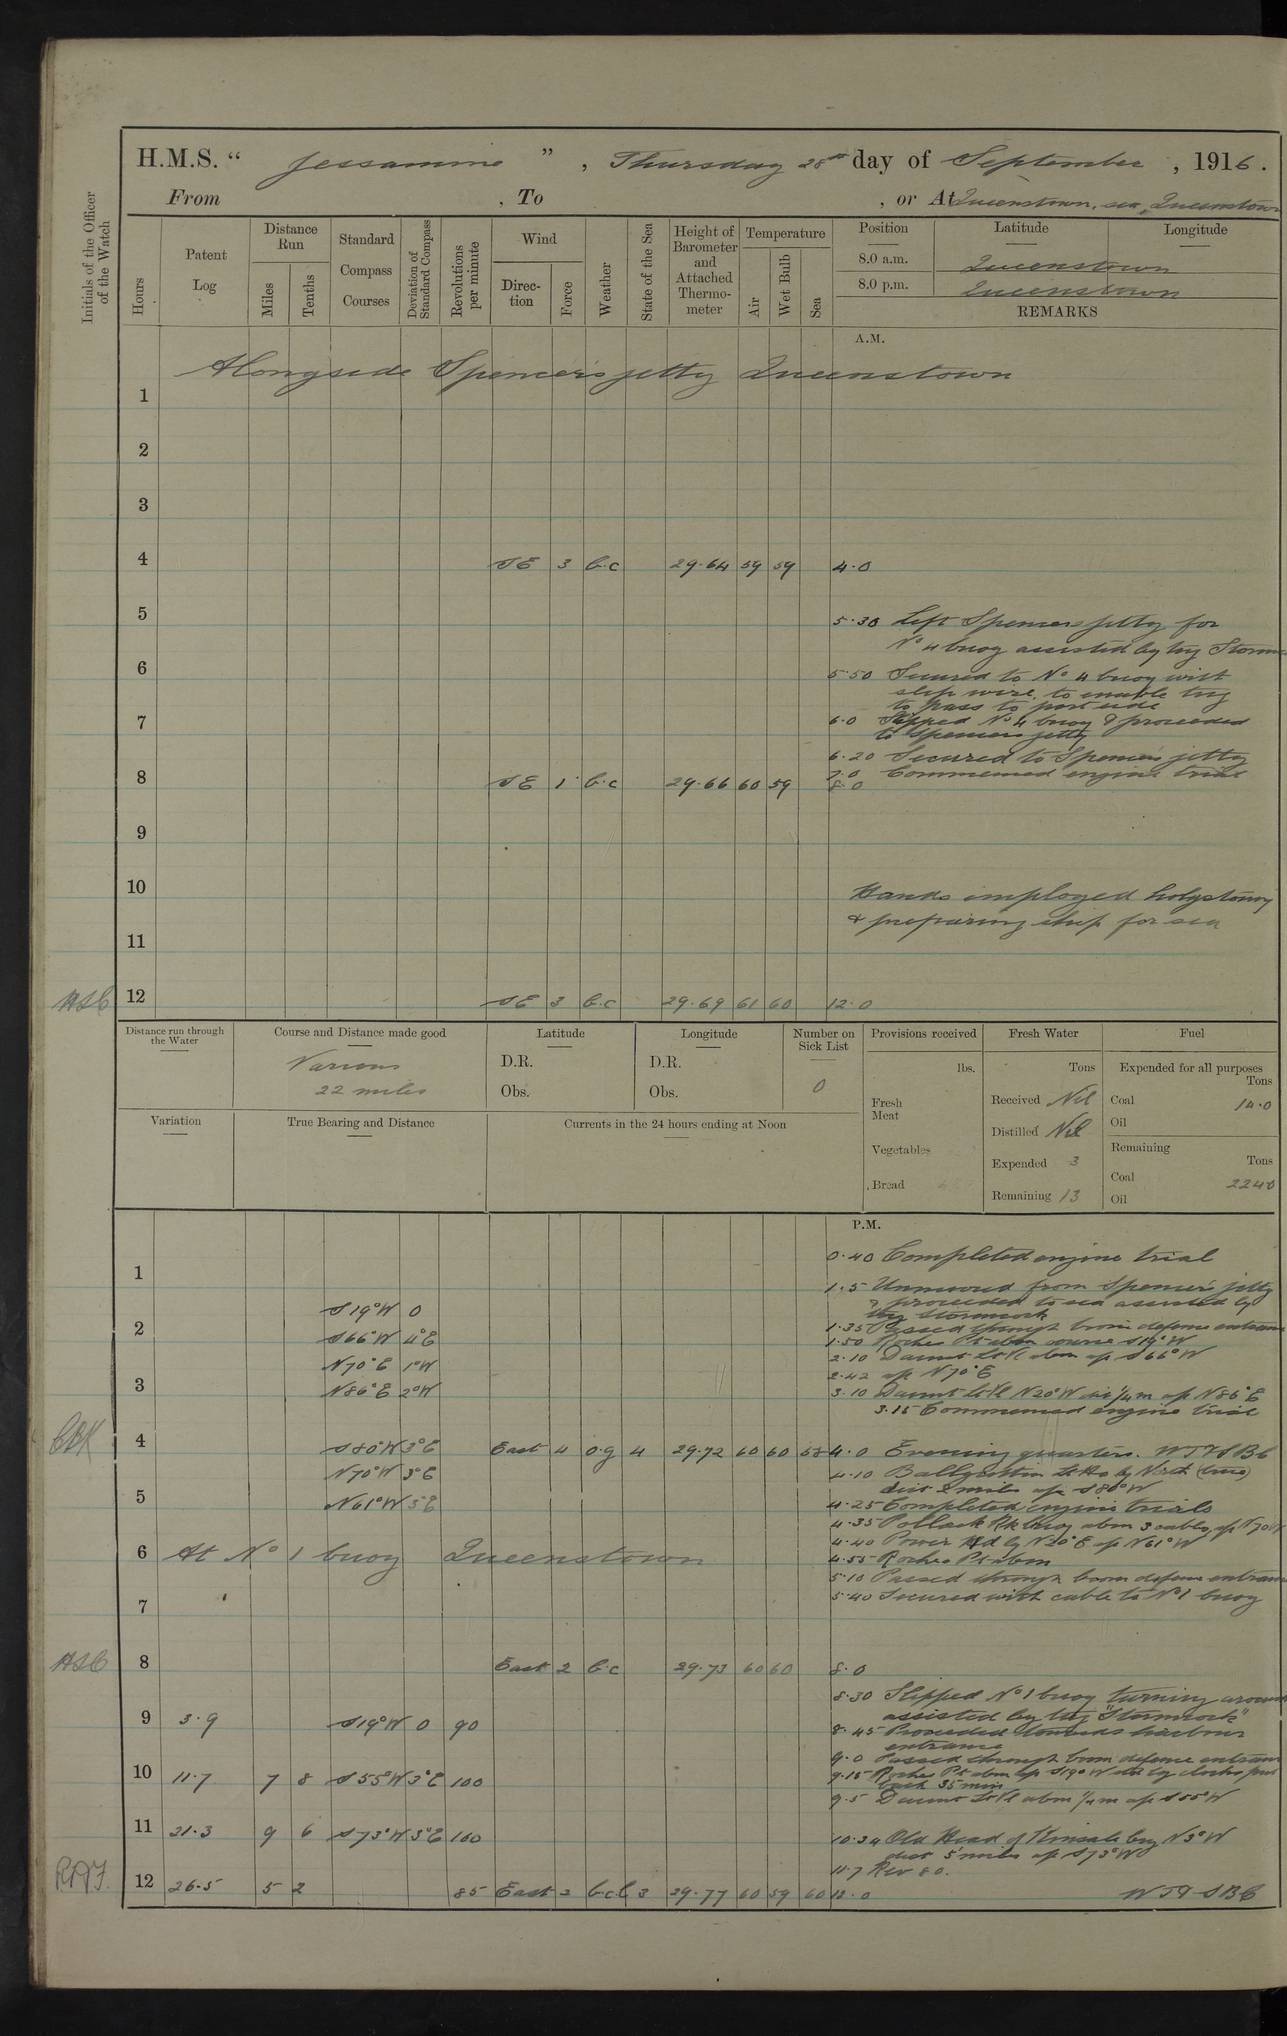 H.M.S. “ Jessamine ” , Thursday 28th day of September , 1916 .
From , To , or At Queenstown, sea, Queenstown
Initials of the Officer of the Watch
Hours
Patent Log
Distance Run
Miles
Tenths
Standard Compass Courses
Deviation of Standard Compass
Revolutions per minute
Wind
Direction
Force
Weather
State of the Sea
Height of Barometer and Attached Thermometer
Temperature
Air
Wet Bulb
Sea
Position
Latitude
Longitude
8.0 a.m. Queenstown
8.0 p.m. Queenstown
REMARKS
A.M.
Alongside Spencer's jetty Queenstown
1
2
3
4 SE 3 b.c 29.64 59 59 4.0
5 5.30 Left Spencers jetty for
No 4 buoy assisted by tug
6 5.50 Secured to No 4 buoy with
slip wire, to enable tug
to pass to port side
7 6.0 Slipped No 4 buoy & proceeded
to Spencers jetty
6.20 Secured to Spencers jetty
7.0 Commenced engine trial
8 SE 1 b.c 29.66 60 59 8.0
9
10 Hands employed holystoning
& preparing ship for sea
11
HSC 12 SE 3 b.c 29.69 61 60 12.0
Distance run through the Water
Course and Distance made good
Various
22 miles
Latitude
D.R.
Obs.
Longitude
D.R.
Obs.
Number on Sick List
0
Provisions received
lbs.
Fresh Meat
Vegetables
Bread
Fresh Water
Tons
Received Nil
Distilled Nil
Expended 3
Remaining 13
Fuel
Expended for all purposes
Tons
Coal 14.0
Oil
Remaining
Tons
Coal 224.0
Oil
Variation
True Bearing and Distance
Currents in the 24 hours ending at Noon
P.M.
0.40 Completed engine trial
1
1.5 Unmoored from Spencer's jetty
& proceeded to sea assisted by
tug Stormcock
S19°W 0
2 S66°W 4°E 1.35 Passed through boom defence entrance
1.50 Roches Pt abm course S19°W
N70°E 1°W 2.10 Daunt Lt Vl abm a/c S66°W
2.42 a/c N70°E
3 N86°E 2°W 3.10 Daunt Lt Vl N20°W dis 1/4 m a/c N86°E
3.15 Commenced engine trial
4 S80°W 3°E East 4 o.g 4 29.72 60 60 58 4.0 Evening quarters.
N70°W 3°E 4.10 Ballycotton Lt Ho by North (true)
dist 2 miles a/c S80°W
5 N61°W 5°E 4.25 Completed engine trials
4.35 Pollack Rk buoy abm 3 cables, a/c N70W
4.40 Power Hd by N20°E a/c N61°W
6 At No 1 buoy Queenstown
4.55 Roches Pt abm
5.10 Passed through boom defence entrance
7 5.40 Secured with cable to No 1 buoy
HSC 8 East 2 b.c 29.73 60 60 8.0
8.30 Slipped No 1 buoy turning around
assisted by tug "Stormcock"
9 3.9 S19°W 0 90 8.45 Proceeded towards harbour
entrance
9.0 Passed through boom defence entrance
10 11.7 7 8 S55°W 3°E 100 9.15 Roches Pt abm a/c S19°W clocks put
back 35 min
9.5 Daunt Lt Vl abm 1/4 m a/c S55°W
11 21.3 9 6 S73°W 3°E 100 10.34 Old Head of Kinsale brg N3°W
dist 5 miles a/c S73°W
11.7 Rev 80.
12 26.5 5 2 85 East 2 b.c.l 3 29.77 60 59 60 12.0